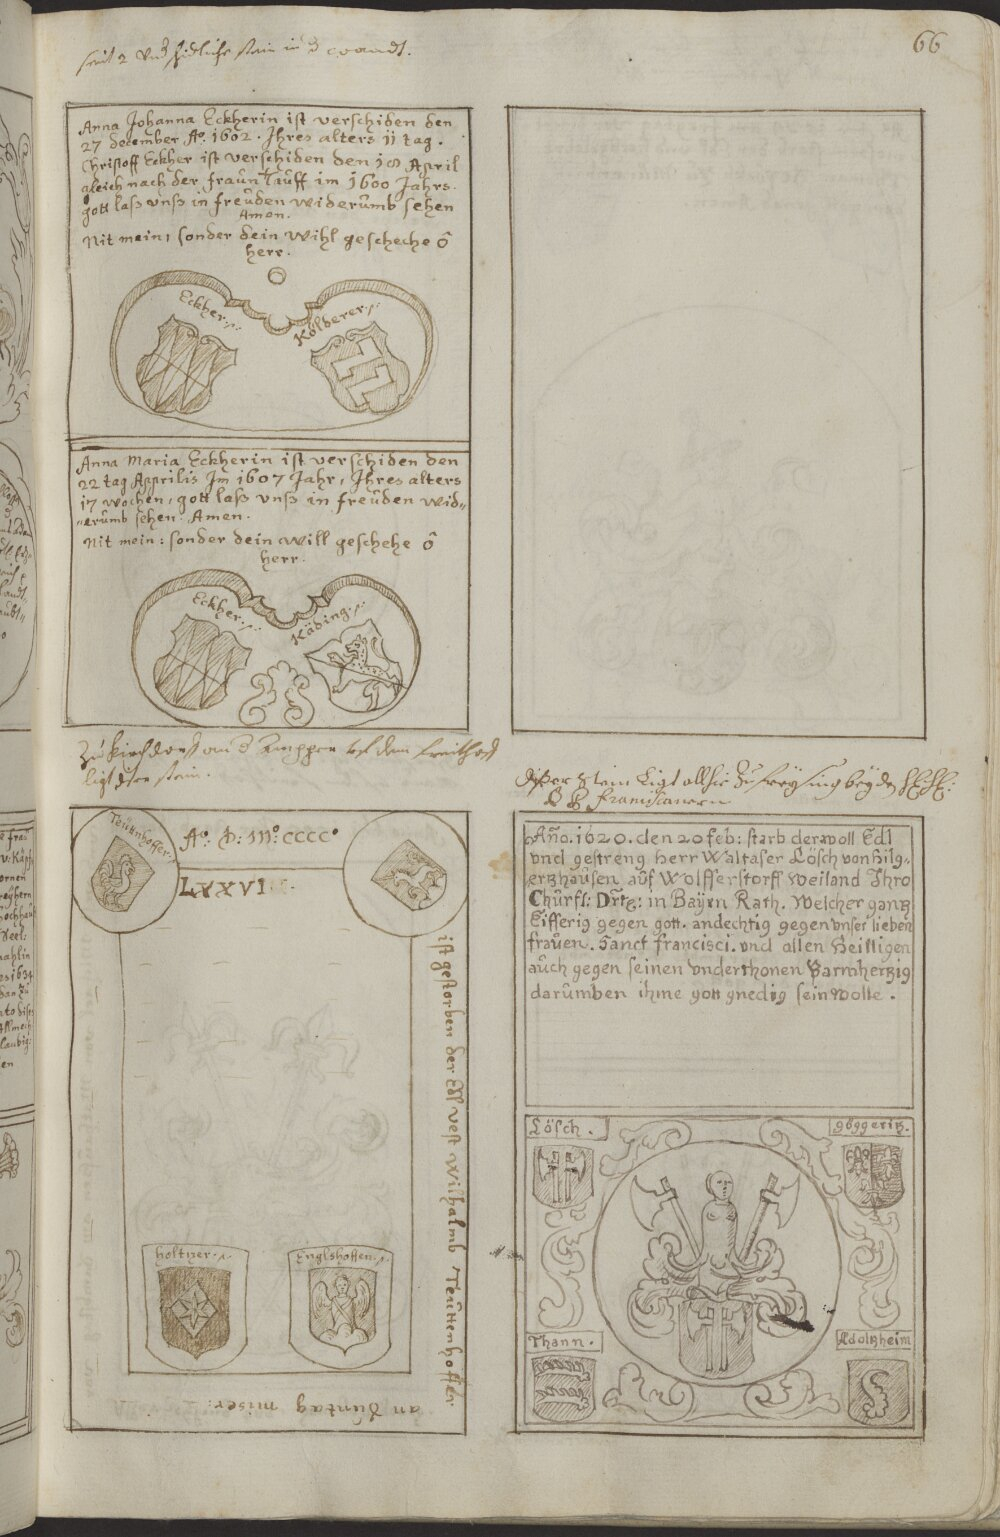 66
seint 2 Undterschidliche stain in d wandt.
Anna Johanna Eckherin ist verschiden den
27 december Aº. 1602. Ihres alters 11 tag.
Christoff Eckher ist verschiden den 18 April
gleich nach der fraûn Taûff im 1600 Jahrs.
gott lass vnss in freûden widerûmb sehen
Amen.
Nit mein, sonder dein Wihl gescheche ô
herr.
Eckher
Kölderer
Anna Maria Eckherin ist verschiden den
22 tag Apprilis Im 1607 Jahr, Ihres alters
17 wochen, gott lass vnss in freûden wid=
=erûmb sehen. Amen.
Nit mein: sonder dein will geschehe ô
herr.
Eckher
Käding
Zu Kirchdorf an d Ampper auf dem freithoff
ligt diser stain.
Teûtnhoffer
Aº. D: Mº. CCCCº
LXXVI
ist gestorben der Edl vest Wilhalmb Teûttenhoffer
an Sûntag miser:
Holtzer
Englshoffen
Diser Stain Ligt allhie Zu Freysing bey den
Franciscanern
Año. 1620. den 20 feb: starb der woll Edl
vnd gestreng herr Waltaser Lösch von Hilg=
ertzhaûsen aûf Wolfferstorff Weiland Ihro
Chûrfl: Drtz: in Bayrn Rath. Welcher gantz
Eifferig gegen gott. andechtig gegen vnser lieben
fraûen. Sanct francisci. vnd allen Heilligen
aûch gegen seinen vnderthonen Barmhertzig
darûmben ihme gott gnedig sein Wolle.
Lösch.
Thann.
Adoltzheim